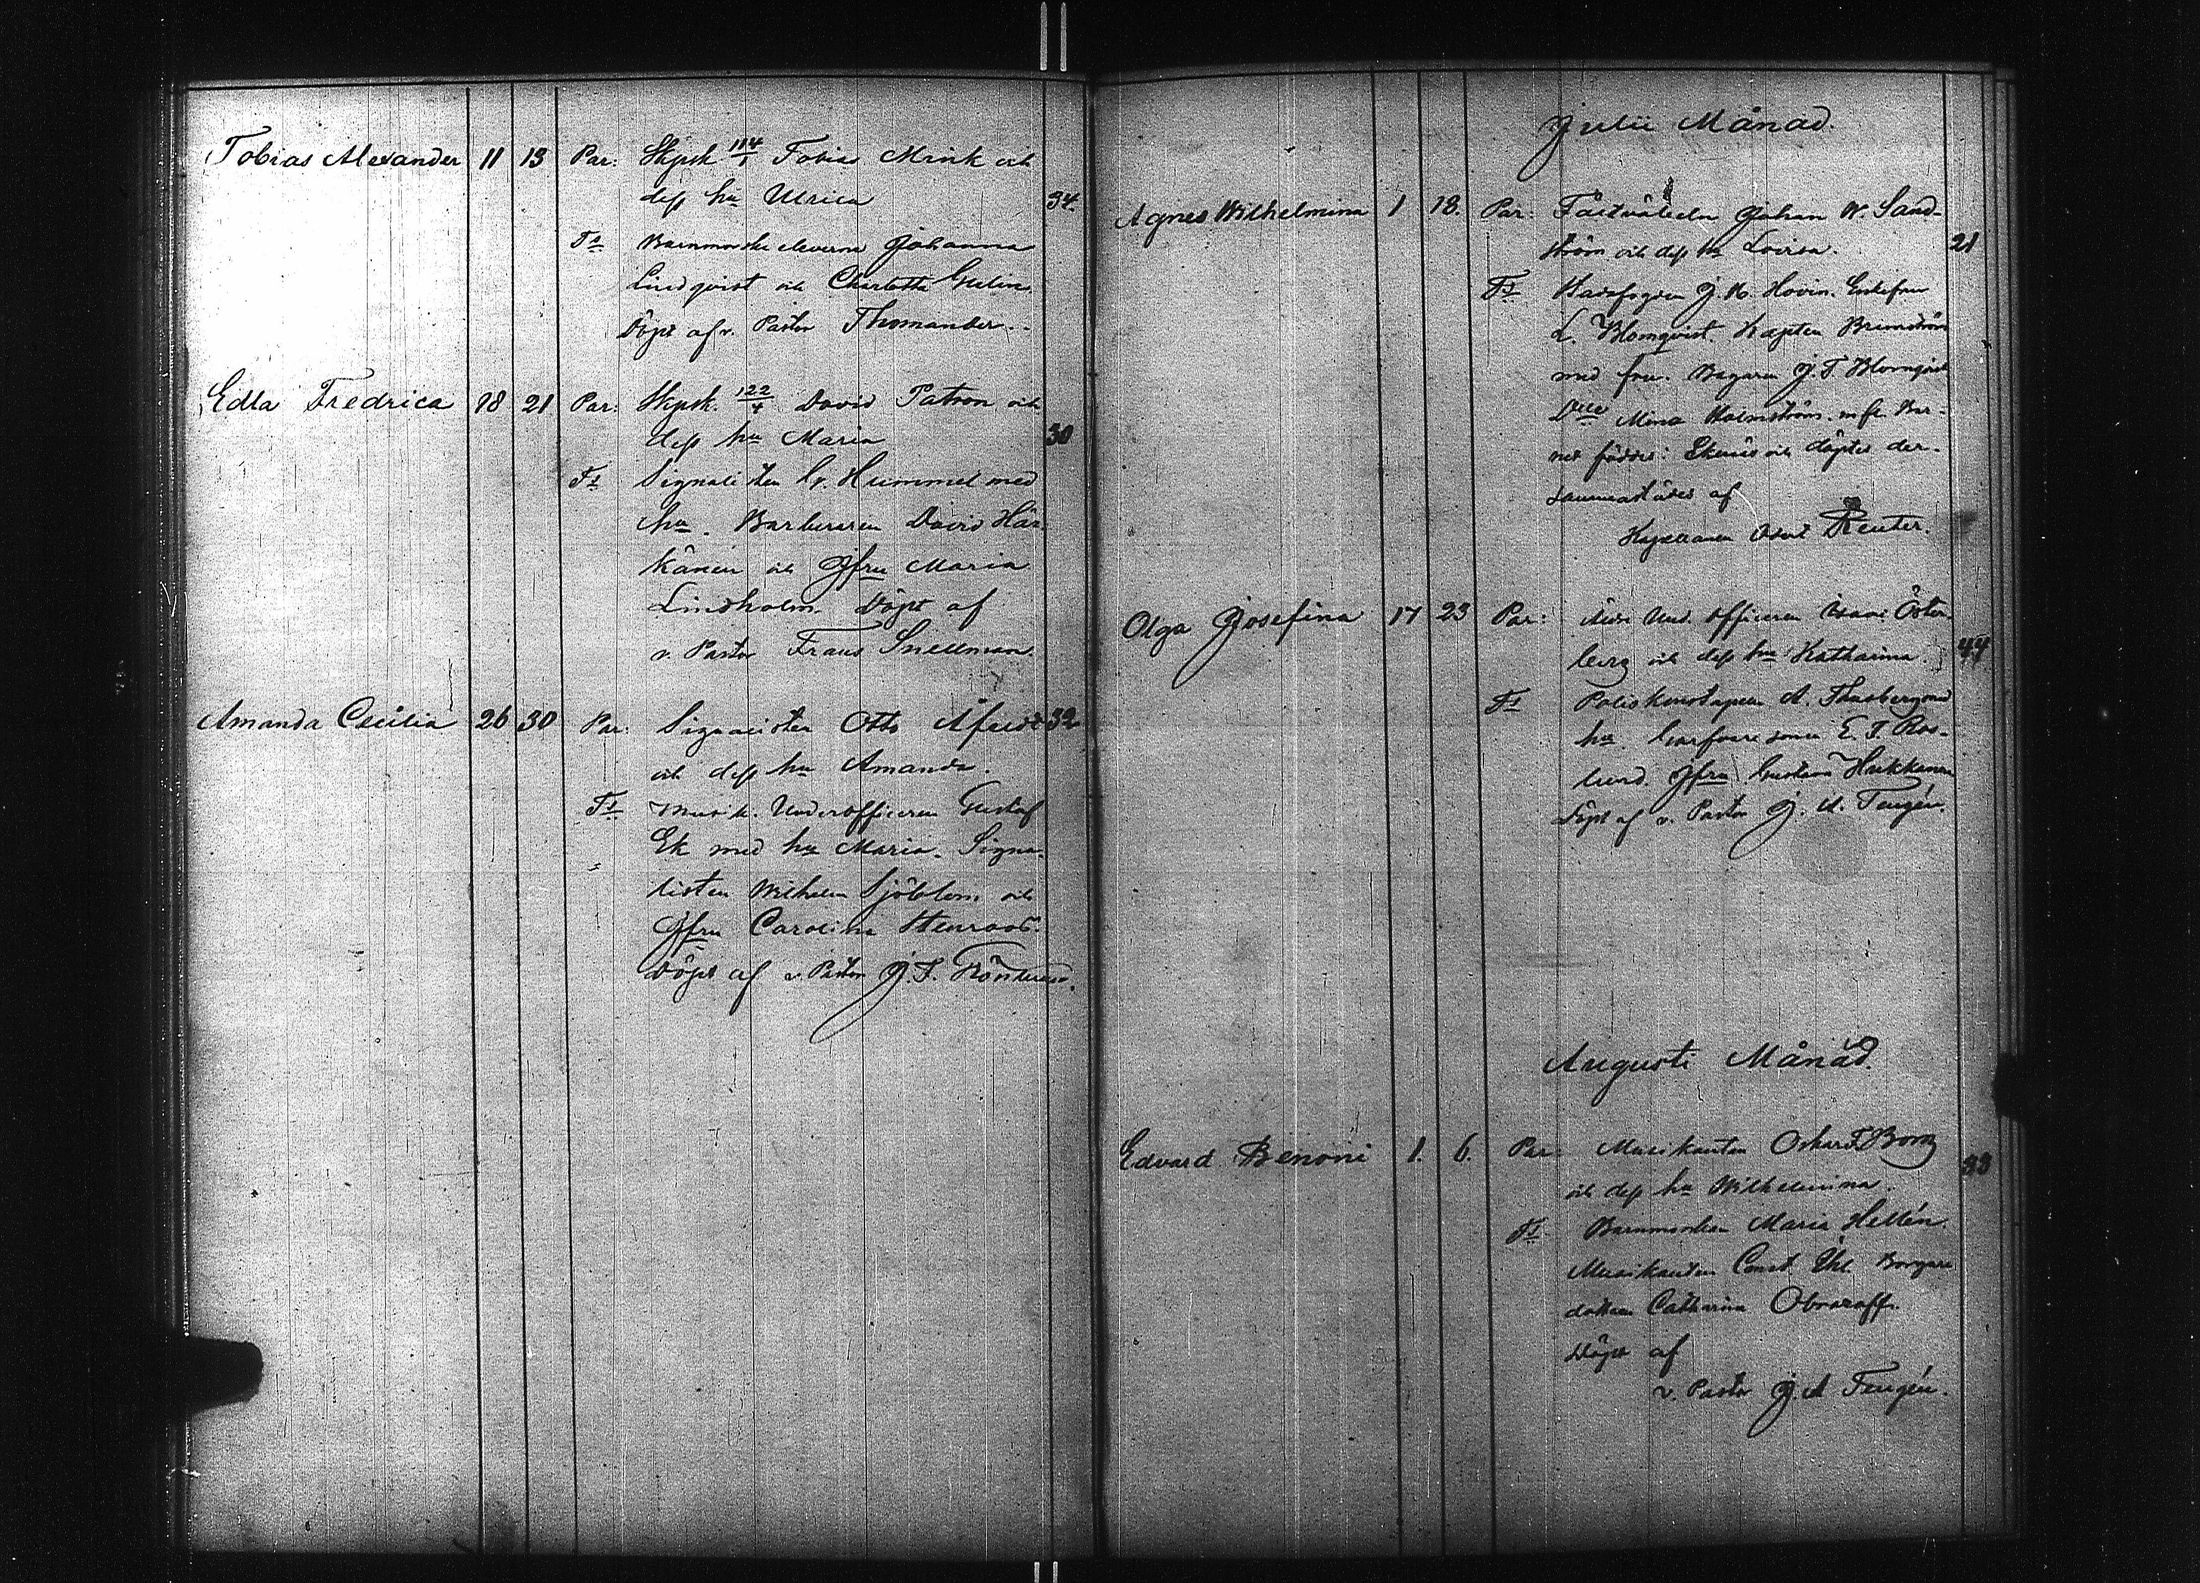 Tobias Alexander 11 13 Par: Skpsk 114/1 Tobias Mrink och
dess hu Ulrica 34.
Ts Barnmorske eleverna Johanna
Lindqvist och Charlotta Gulin.
Döpt af v. Pastor Thomander.
Edla Fredrica 18 21 Par: Skpsk. 122/4 David Patron och
dess hu Maria 30
Ts Signalisten G. Hummel med
hu. Barberaren David Här-
känen och Jfru Maria
Lindholm. Döpt af
v. Pastor Frans Snellman.
Amanda Cecilia 26 30 Par: Signalisten Otto Åfeldt 32
och dess hu Amanda.
Ts Musik. Underofficeren Gustaf
Ek med hu Maria. Signa-
listen Wilhelm Sjöblom och
Jfru Carolina Stenroos.
Döpt af v. Pastor J. F.
Julii Månad.
Agnes Wilhelmina 1 18. Par: Fältväbeln Johan W. Sand-
ström och dess hu Lovisa. 21
Ts J. H. Hovin. Enkefru
L. Blomqvist. Kapten Brunström
med fru. Bagaren J. F. Blomqvist
Dlle Mina Holmström. m. fl. Bar-
net föddes i Ekenäs och döptes der-
sammastädes af
Kapellanen Reuter.
Olga Josefina 17 23 Par: Und. officeren Öster-
berg och dess hu Katharina. 44
Ts Poliskonstapeln A. med
hu. Garfvare sonen E. F. Ros-
lund. Jfru Gustava Hukkanen
Döpt af v. Pastor J. A. Tengén.
Augusti Månad.
Edvard Benoni 1. 6. Par: Musikanten Oskar F. Borg
och dess hu Wilhelmina. 33
Ts Barnmorskan Maria Hellén.
Musikanten Const. Uhl. Borgare
dottern Catharina Obrasoff.
Döpt af
v. Pastor J. A Tengén.